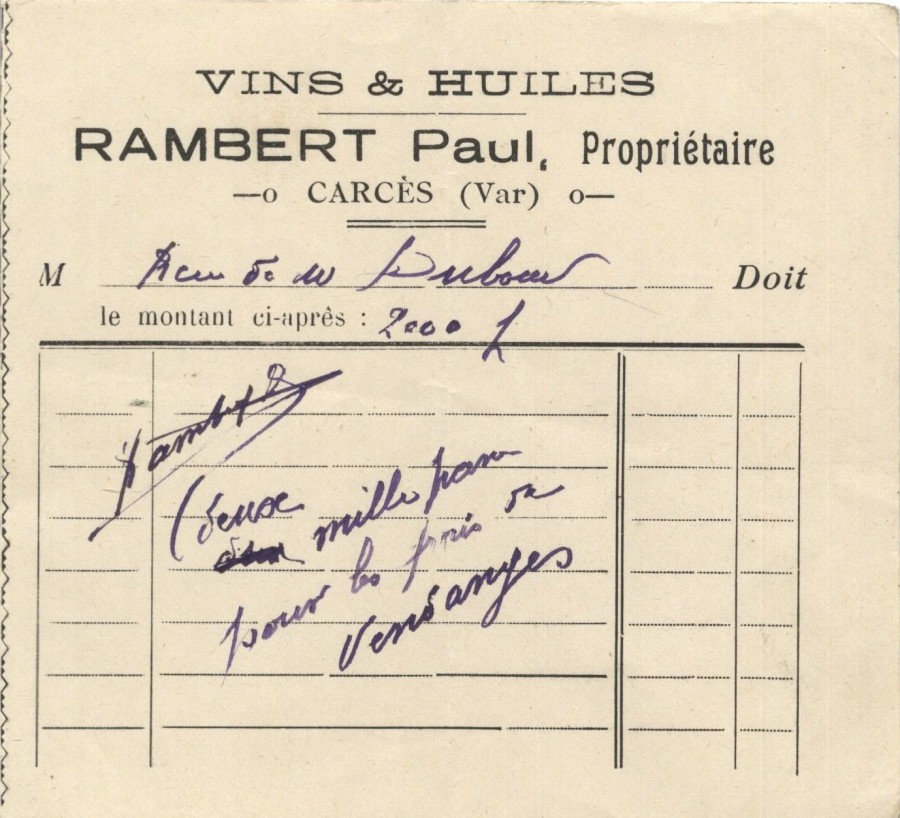 VINS & HUILES
RAMBERT Paul, Propriétaire
CARCÈS (Var)
M Recu de M Dubœuf Doit
le montant ci-après : 2000 f
Rambert
(deux mille
pour les frais de
Vendanges